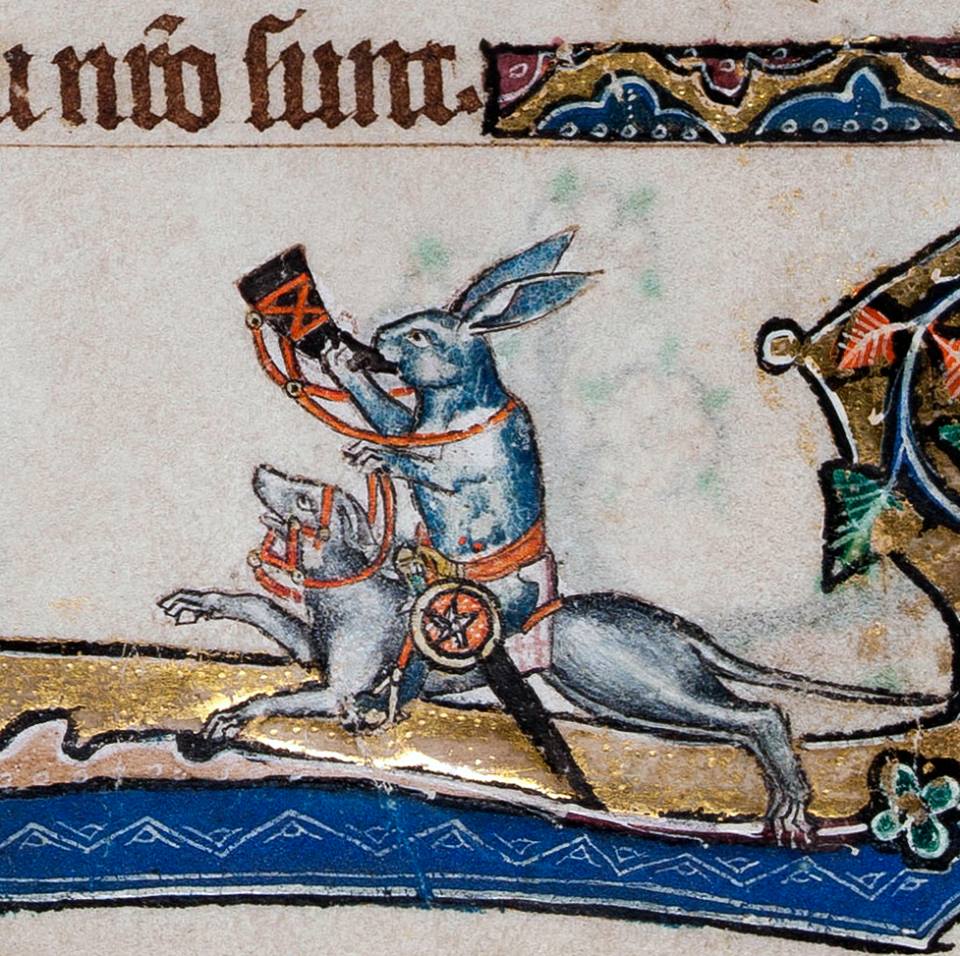 nr̃o sunt.